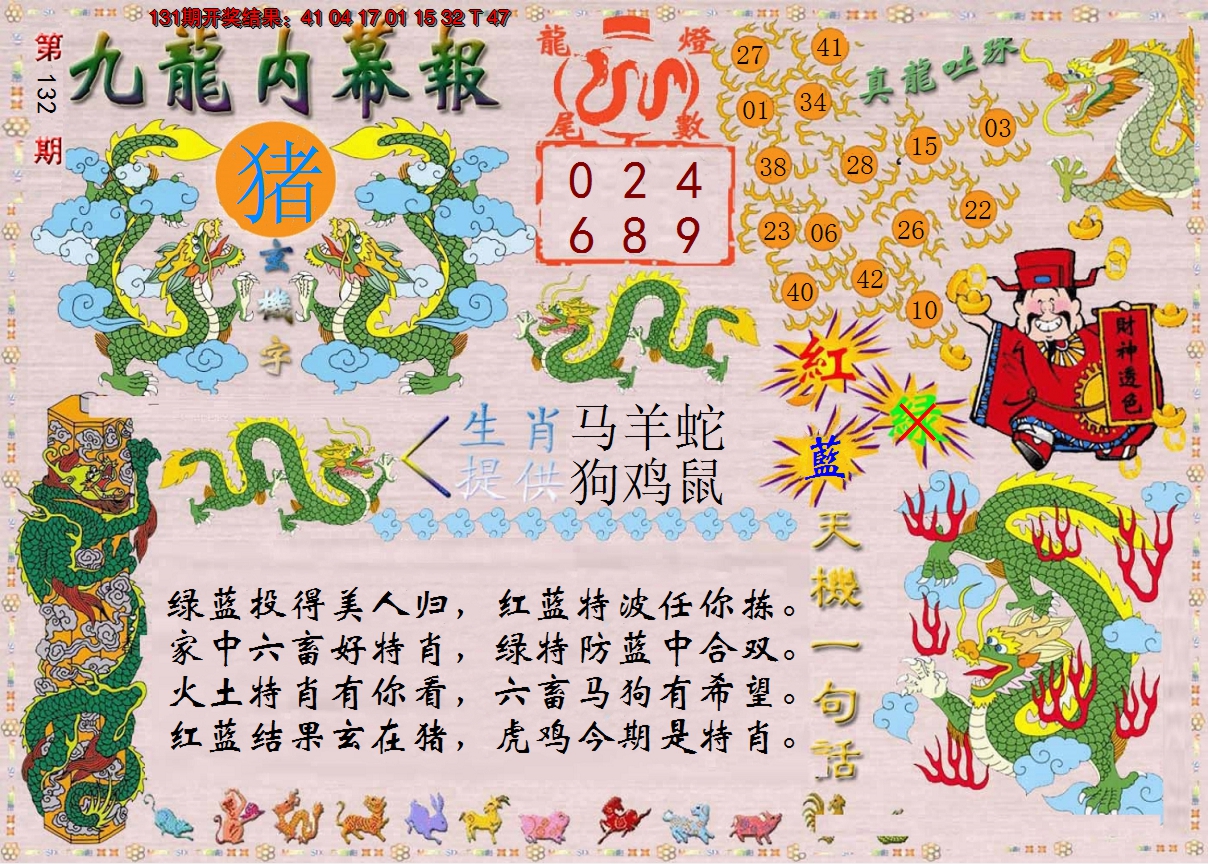 131期开奖结果：41 04 17 01 15 32 T 47
第132期
九龍内幕報
猪
玄機字
龍燈
尾數
0 2 4
6 8 9
真龍吐珠
27 41
01 34
38 28 15 03
23 06 26 22
40 42 10
財神透色
紅
绿
藍
生肖 马羊蛇
提供 狗鸡鼠
天機一句話
绿蓝投得美人归，红蓝特波任你拣。
家中六畜好特肖，绿特防蓝中合双。
火土特肖有你看，六畜马狗有希望。
红蓝结果玄在猪，虎鸡今期是特肖。